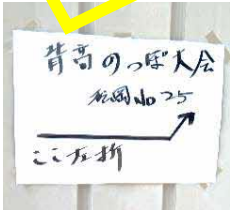 背高のっぽ大会
松岡No 25
ここ左折